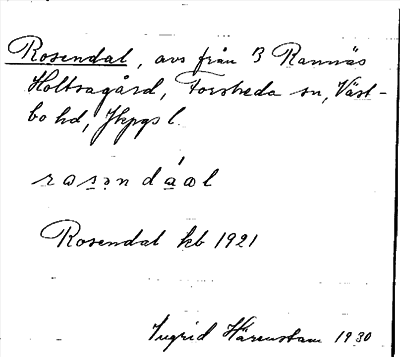 Rosendal, avs från B Rannäs
Holtsagård, Forsheda sn, Väst-
bo hd, Jkpgs l.
rosəndáal
Rosendal kb 1921
Ingrid Härenstam 1930